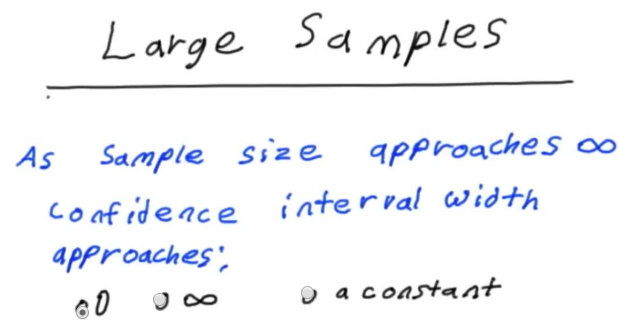 Large Samples
As Sample size approaches ∞
confidence interval width
approaches:
0 ∞ a constant